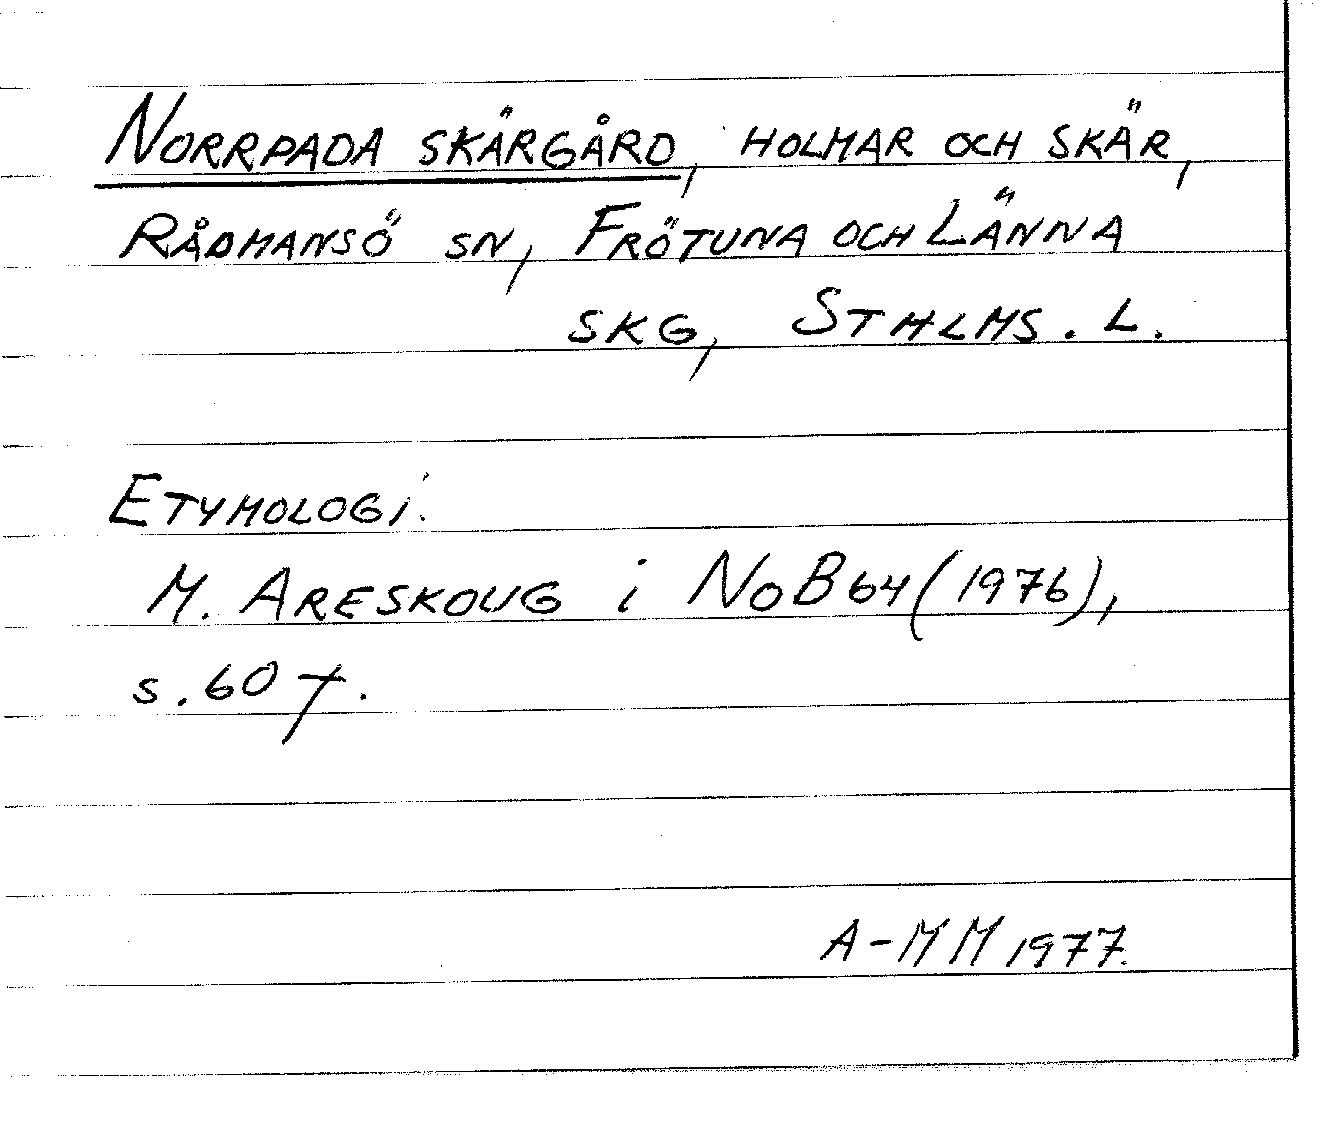 NORRPADA SKÄRGÅRD, HOLMAR OCH SKÄR,
RÅDMANSÖ SN, FRÖTUNA OCH LÄNNA
SKG, STHLMS. L.
ETYMOLOGI.
M. ARESKOUG i NoB 64 (1976),
s. 60 f.
A-MM 1977.